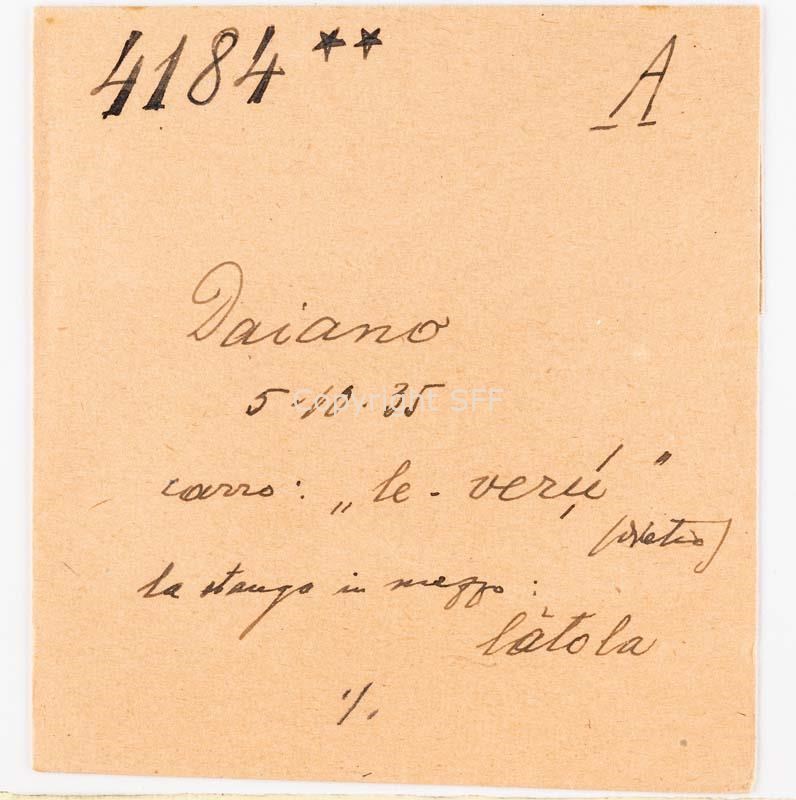 4184 ** A
Daiano
5·10·35
Copyright SFF
carro: „le-verụ́"
(dietro)
la stanga in mezzo:
làtola
·/.